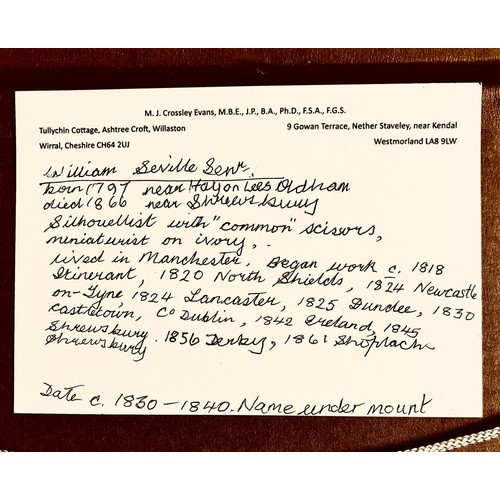 M. J. Crossley Evans, M.B.E., J.P., B.A., Ph.D., F.S.A., F.G.S.
Tullychin Cottage, Ashtree Croft, Willaston
9 Gowan Terrace, Nether Staveley, near Kendal
Wirral, Cheshire CH64 2UJ
Westmorland LA8 9LW
William Seville Senr.
born 1797 near Lees Oldham
died 1866 near Shrewsbury
Silhouettist with "common" scissors,
meniaturist on ivory,.
lived in Manchester, Began work c. 1818
Itinerant, 1820 North Shields, 1824 Newcastle
on-Tyne 1824 Lancaster, 1825 Dundee, 1830
Castletown, Co Dublin, 1842 Ireland, 1845
Shrewsbury. 1856 Derby, 1861
Shrewsbury
Date c. 1830-1840. Name under mount